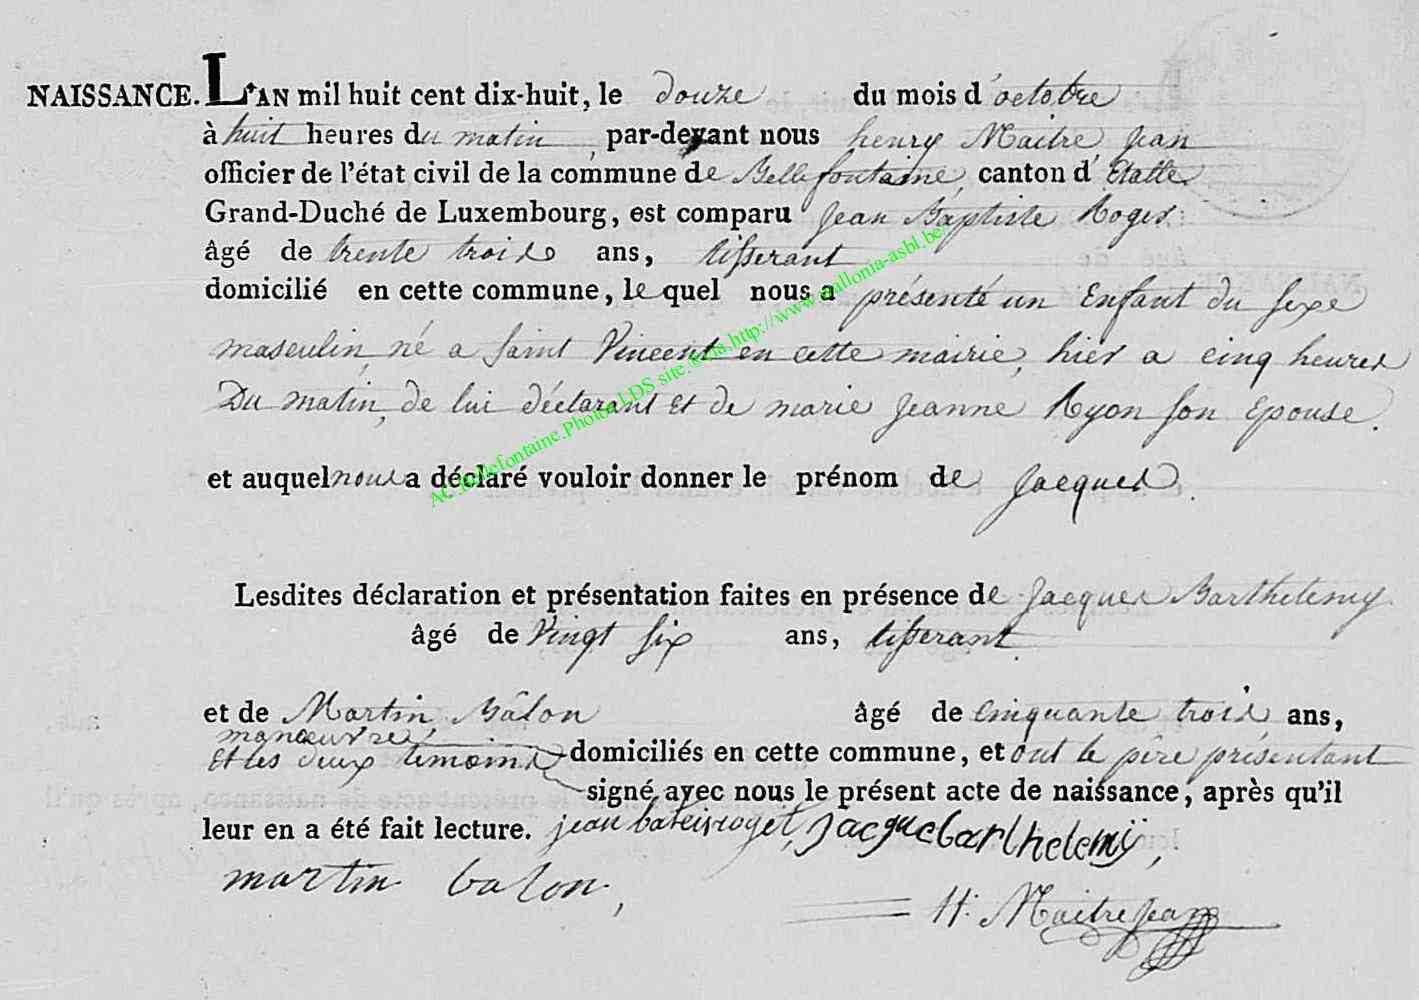 NAISSANCE. L'AN mil huit cent dix-huit, le douze du mois d'octobre
à huit heures du matin, par-devant nous henry Maitre Jean
officier de l'état civil de la commune de Bellefontaine, canton d'Etalle
Grand-Duché de Luxembourg, est comparu Jean Baptiste Roger
âgé de trente trois ans, tisserant
domicilié en cette commune, lequel nous a présenté un Enfant du sexe
masculin, né a Saint Vincent en cette mairie, hier a cinq heures
Du matin, de lui déclarant et de marie Jeanne Ryon son Epouse.
et auquel nous a déclaré vouloir donner le prénom de Jacques.
Lesdites déclaration et présentation faites en présence de Jacques Barthelemy
âgé de Vingt six ans, tisserant
et de Martin Bâlon âgé de cinquante trois ans,
manœuvre,
Et les deux témoins domiciliés en cette commune, et ont le père présentant
signé avec nous le présent acte de naissance, après qu'il
leur en a été fait lecture. jean batis roget, jacque barthelemÿ,
martin balon,
H. MaitreJean
AC.Bellefontaine.Photos LDS site.©ctia.http://www.wallonia-asbl.be/